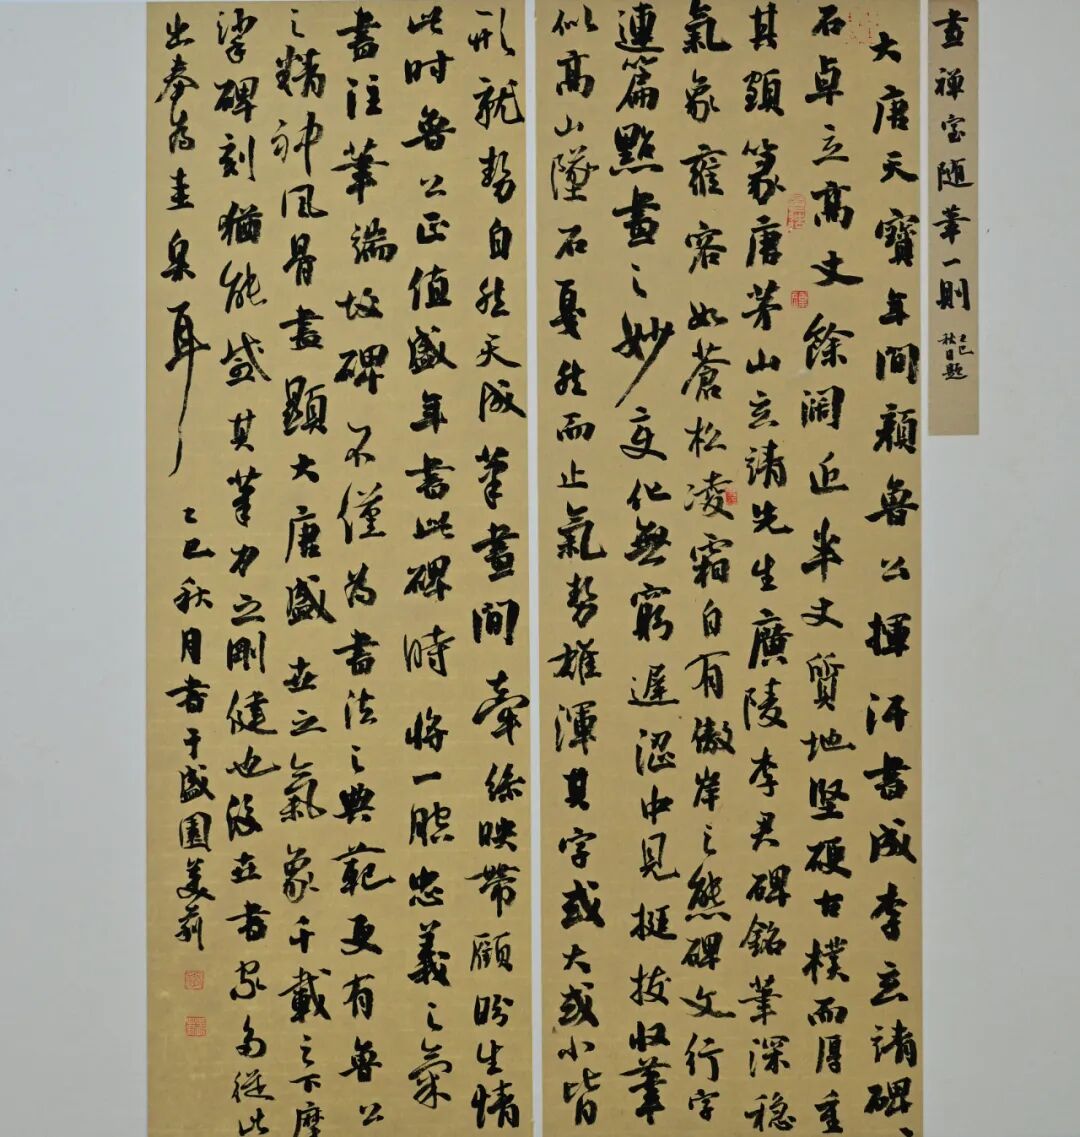 畫禪室随筆一則
乙巳
秋日題
大唐天寶年間顏魯公揮汗書成李玄靖碑、
石卓立高丈餘闊近半丈質地堅硬古樸而厚重
其額篆唐茅山玄靖先生廣陵李君碑銘筆深穩
氣象雍容如蒼松凌霜自有傲岸之態碑文行字
連篇點畫之妙变化無窮遲澀中見挺拔收筆
似高山墜石戛然而止氣勢雄渾其字或大或小皆
形就勢自然天成筆畫間牽絲映帶顧盼生情
此时魯公正值盛年書此碑時將一腔忠義之氣
書注筆端故碑不僅為書法之典範更有魯公
之精神风骨盡顯大唐盛世之氣象千載之下摩
挲碑刻猶能感其筆力之剛健也後世書家多從此
出奉為圭臬耳 乙巳秋月書于盛園美莉